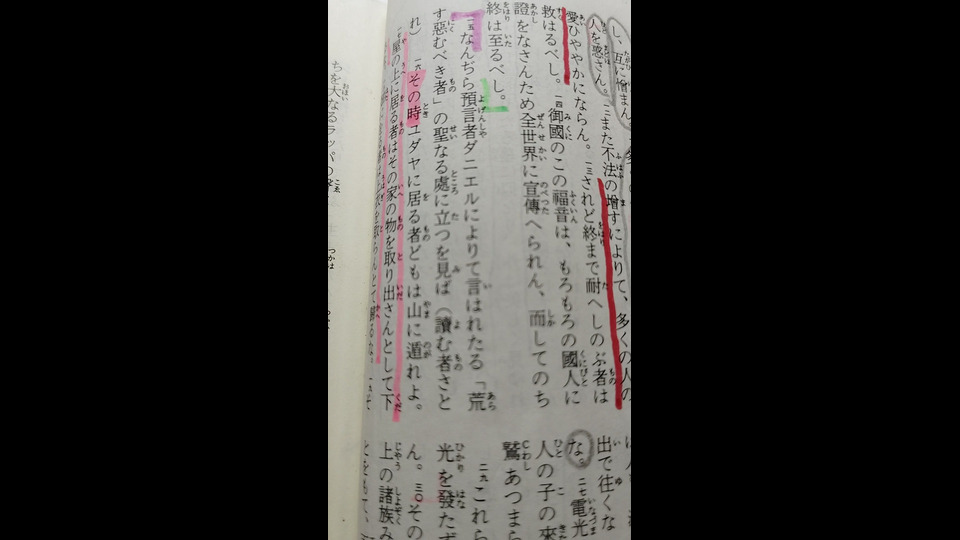 し、互に憎まん。
人を惑さん。一二また不法の増すによりて、多くの人の
愛ひややかにならん。一三されど終まで耐へしのぶ者は
救はるべし。一四御國のこの福音は、もろもろの國人に
證をなさんため全世界に宣傳へられん、而してのち
終は至るべし。
一五なんぢら預言者ダニエルによりて言はれたる「荒
す惡むべき者」の聖なる處に立つを見ば（讀む者さと
れ）一六その時ユダヤに居る者どもは山に遁れよ。
一七屋の上に居る者はその家の物を取り出さんとして下
出で往くな
な。二七電光
人の子の來
鷲あつまら
二九これら
光を發たず
ん。三〇その
上の諸族み
ちを大なるラッパの